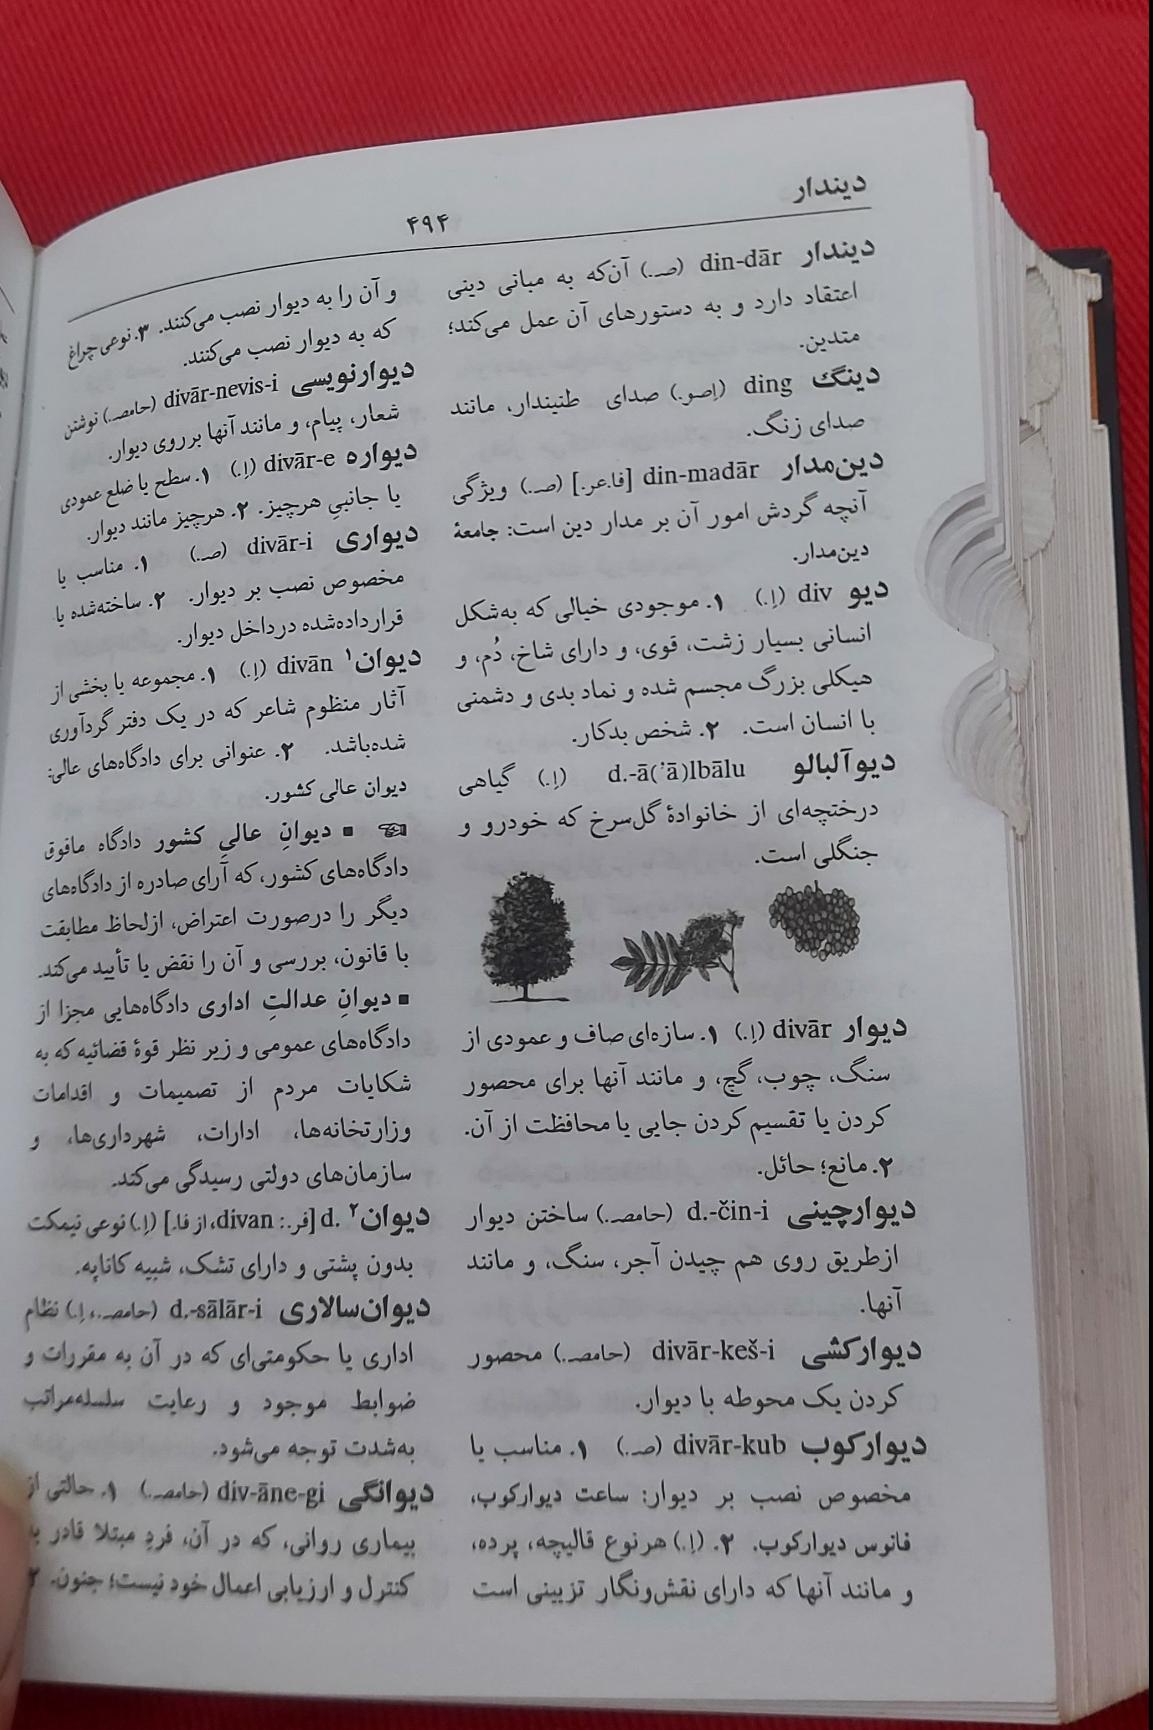 دیندار
۴۹۴
دیندار din-dār (صـ.) آن‌که به مبانی دینی
اعتقاد دارد و به دستورهای آن عمل می‌کند؛
متدین.
دینگ ding (اِصو.) صدای طنیندار، مانند
صدای زنگ.
دین‌مدار din-madār [فا.عر.] (صـ.) ویژگی
آنچه گردش امور آن بر مدار دین است: جامعهٔ
دین‌مدار.
دیو div (اِ.) ۱. موجودی خیالی که به‌شکل
انسانی بسیار زشت، قوی، و دارای شاخ، دُم، و
هیکلی بزرگ مجسم شده و نماد بدی و دشمنی
با انسان است. ۲. شخص بدکار.
دیوآلبالو d.-ā(’ā)lbālu (اِ.) گیاهی
درختچه‌ای از خانوادهٔ گل‌سرخ که خودرو و
جنگلی است.
دیوار divār (اِ.) ۱. سازه‌ای صاف و عمودی از
سنگ، چوب، گچ، و مانند آنها برای محصور
کردن یا تقسیم کردن جایی یا محافظت از آن.
۲. مانع؛ حائل.
دیوارچینی d.-čin-i (حامصـ.) ساختن دیوار
ازطریق روی هم چیدن آجر، سنگ، و مانند
آنها.
دیوارکشی divār-keš-i (حامصـ.) محصور
کردن یک محوطه با دیوار.
دیوارکوب divār-kub (صـ.) ۱. مناسب یا
مخصوص نصب بر دیوار: ساعت دیوارکوب،
فانوس دیوارکوب. ۲. (اِ.) هرنوع قالیچه، پرده،
و مانند آنها که دارای نقش‌ونگار تزیینی است
و آن را به دیوار نصب می‌کنند. ۳. نوعی چراغ
که به دیوار نصب می‌کنند.
دیوارنویسی divār-nevis-i (حامصـ.) نوشتن
شعار، پیام، و مانند آنها برروی دیوار.
دیواره divār-e (اِ.) ۱. سطح یا ضلع عمودی
یا جانبیِ هرچیز. ۲. هرچیز مانند دیوار.
دیواری divār-i (صـ.) ۱. مناسب یا
مخصوص نصب بر دیوار. ۲. ساخته‌شده یا
قرارداده‌شده درداخل دیوار.
دیوان¹ divān (اِ.) ۱. مجموعه یا بخشی از
آثار منظوم شاعر که در یک دفتر گردآوری
شده‌باشد. ۲. عنوانی برای دادگاه‌های عالی:
دیوان عالی کشور.
☜ ▪ دیوانِ عالیِ کشور دادگاه مافوق
دادگاه‌های کشور، که آرای صادره از دادگاه‌های
دیگر را درصورت اعتراض، ازلحاظ مطابقت
با قانون، بررسی و آن را نقض یا تأیید می‌کند.
▪ دیوانِ عدالتِ اداری دادگاه‌هایی مجزا از
دادگاه‌های عمومی و زیر نظر قوهٔ قضائیه که به
شکایات مردم از تصمیمات و اقدامات
وزارتخانه‌ها، ادارات، شهرداری‌ها، و
سازمان‌های دولتی رسیدگی می‌کند.
دیوان² d. [فر.: divan، از فا.] (اِ.) نوعی نیمکت
بدون پشتی و دارای تشک، شبیه کاناپه.
دیوان‌سالاری d.-sālār-i (حامصـ.، اِ.) نظام
اداری یا حکومتی‌ای که در آن به مقررات و
ضوابط موجود و رعایت سلسله‌مراتب
به‌شدت توجه می‌شود.
دیوانگی div-āne-gi (حامصـ.) ۱. حالتی از
بیماری روانی، که در آن، فردِ مبتلا قادر به
کنترل و ارزیابی اعمال خود نیست؛ جنون. ۲